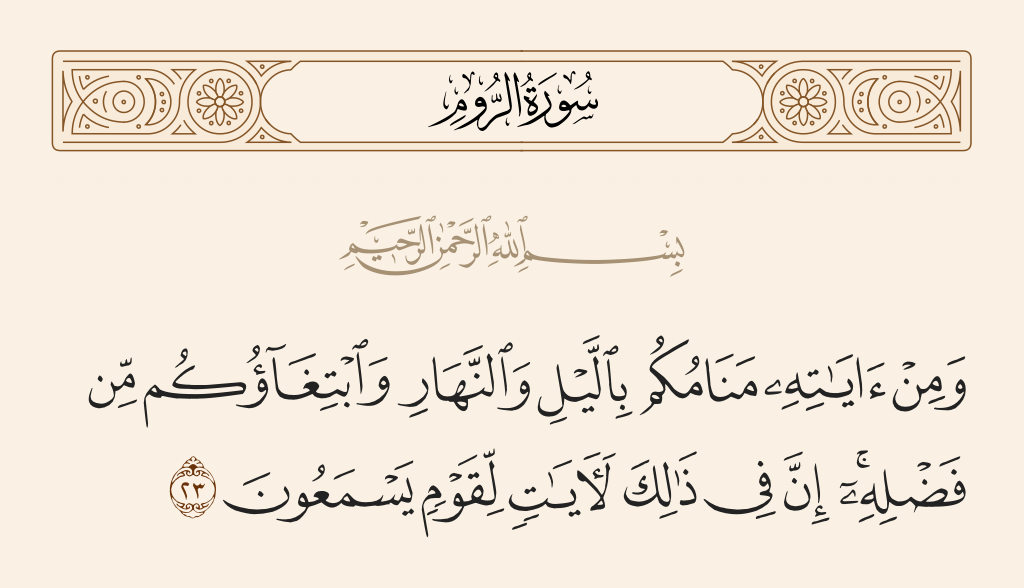 سُورَةُ الرُّومِ
بِسْمِ ٱللَّهِ ٱلرَّحْمَٰنِ ٱلرَّحِيمِ
وَمِنْ ءَايَٰتِهِۦ مَنَامُكُم بِٱلَّيْلِ وَٱلنَّهَارِ وَٱبْتِغَآؤُكُم مِّن
فَضْلِهِۦٓ ۚ إِنَّ فِى ذَٰلِكَ لَءَايَٰتٍ لِّقَوْمٍ يَسْمَعُونَ ٢٣